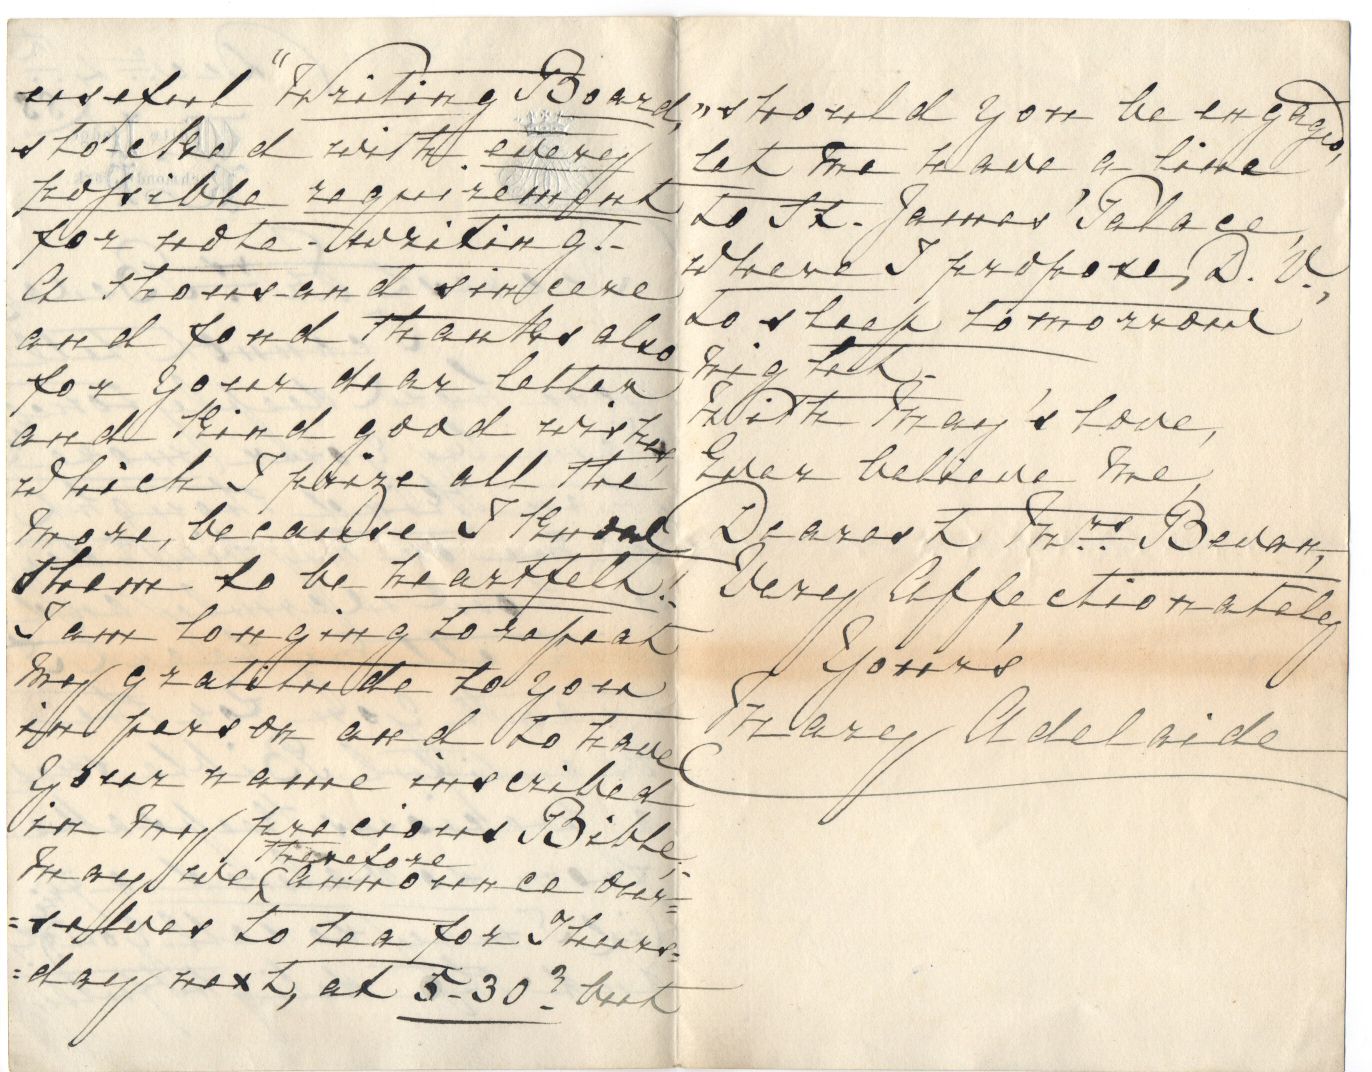 useful "Writing Board,"
stocked with every
possible requirement
for note-writing!-
A thousand sincere
and fond thanks also
for your dear letter
and kind good wishes,
which I prize all the
more, because I know
them to be heartfelt!
I am longing to repeat
my gratitude to you
in person and to have
your name inscribed
in my precious Bible;-
therefore
May we announce our=
=selves to tea for Thurs=
=day next, at 5-30? but
should you be engaged,
let me have a line
to St. James' Palace,
where I propose, D.V.,
to sleep tomorrow
night.
With May's love,
Ever believe me,
Dearest Mrs Bevan,
Very Affectionately
Your's
Mary Adelaide